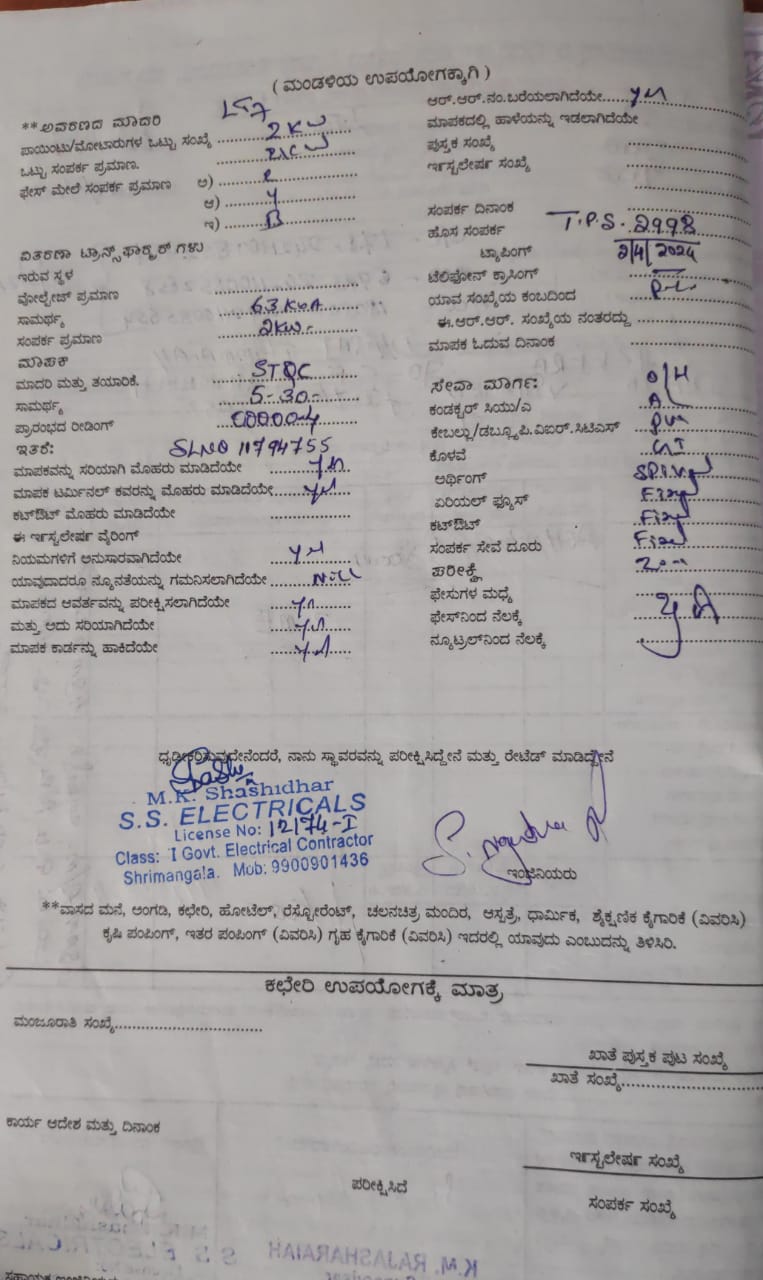 ( ಮಂಡಳಿಯ ಉಪಯೋಗಕ್ಕಾಗಿ )
**ಆವರಣದ ಮಾದರಿ LT7
ಪಾಯಿಂಟು/ಮೋಟಾರುಗಳ ಒಟ್ಟು ಸಂಖ್ಯೆ 2KW
ಒಟ್ಟು ಸಂಪರ್ಕ ಪ್ರಮಾಣ. 2KW
ಫೇಸ್ ಮೇಲೆ ಸಂಪರ್ಕ ಪ್ರಮಾಣ ಅ) R
ಆ) Y
ಇ) B
ವಿತರಣಾ ಟ್ರಾನ್ಸ್‌ಫಾರ್ಮರ್‌ಗಳು
ಇರುವ ಸ್ಥಳ
ವೋಲ್ಟೇಜ್ ಪ್ರಮಾಣ
ಸಾಮರ್ಥ್ಯ 63 KVA
ಸಂಪರ್ಕ ಪ್ರಮಾಣ 2KW-
ಮಾಪಕ
ಮಾದರಿ ಮತ್ತು ತಯಾರಿಕೆ. STQC
ಸಾಮರ್ಥ್ಯ 5-30-
ಪ್ರಾರಂಭದ ರೀಡಿಂಗ್ 00000-4
ಇತರೆ: SLNO 11794755
ಮಾಪಕವನ್ನು ಸರಿಯಾಗಿ ಮೊಹರು ಮಾಡಿದೆಯೇ
ಮಾಪಕ ಟರ್ಮಿನಲ್ ಕವರನ್ನು ಮೊಹರು ಮಾಡಿದೆಯೇ
ಕಟ್‌ಔಟ್ ಮೊಹರು ಮಾಡಿದೆಯೇ
ಈ ಇನ್ಸ್ಟಲೇಷನ್ ವೈರಿಂಗ್
ನಿಯಮಗಳಿಗೆ ಅನುಸಾರವಾಗಿದೆಯೇ
ಯಾವುದಾದರೂ ನ್ಯೂನತೆಯನ್ನು ಗಮನಿಸಲಾಗಿದೆಯೇ Nill
ಮಾಪಕದ ಆವರ್ತವನ್ನು ಪರೀಕ್ಷಿಸಲಾಗಿದೆಯೇ
ಮತ್ತು ಅದು ಸರಿಯಾಗಿದೆಯೇ
ಮಾಪಕ ಕಾರ್ಡನ್ನು ಹಾಕಿದೆಯೇ
ಆರ್.ಆರ್.ನಂ.ಬರೆಯಲಾಗಿದೆಯೇ
ಮಾಪಕದಲ್ಲಿ ಹಾಳೆಯನ್ನು ಇಡಲಾಗಿದೆಯೇ
ಪುಸ್ತಕ ಸಂಖ್ಯೆ
ಇನ್ಸ್ಟಲೇಷನ್ ಸಂಖ್ಯೆ
ಸಂಪರ್ಕ ದಿನಾಂಕ
ಹೊಸ ಸಂಪರ್ಕ T.P.S. 2998
ಟ್ಯಾಪಿಂಗ್ 2/4/2024
ಟೆಲಿಫೋನ್ ಕ್ರಾಸಿಂಗ್
ಯಾವ ಸಂಖ್ಯೆಯ ಕಂಬದಿಂದ
ಈ.ಆರ್.ಆರ್. ಸಂಖ್ಯೆಯ ನಂತರದ್ದು
ಮಾಪಕ ಓದುವ ದಿನಾಂಕ
ಸೇವಾ ಮಾರ್ಗ: O/H
ಕಂಡಕ್ಟರ್ ಸಿಯು/ಎ AL
ಕೇಬಲ್ಲು/ಡಬ್ಲ್ಯೂಪಿ.ವಿಐಆರ್.ಸಿಟಿಎಸ್
ಕೊಳವೆ GI
ಅರ್ಥಿಂಗ್
ಏರಿಯಲ್ ಫ್ಯೂಸ್
ಕಟ್‌ಔಟ್
ಸಂಪರ್ಕ ಸೇವೆ ದೂರು
ಪರೀಕ್ಷೆ
ಫೇಸುಗಳ ಮಧ್ಯೆ
ಫೇಸ್‌ನಿಂದ ನೆಲಕ್ಕೆ
ನ್ಯೂಟ್ರಲ್‌ನಿಂದ ನೆಲಕ್ಕೆ
ಧೃಡೀಕರಿಸುವುದೇನೆಂದರೆ, ನಾನು ಸ್ಥಾವರವನ್ನು ಪರೀಕ್ಷಿಸಿದ್ದೇನೆ ಮತ್ತು ರೇಟೆಡ್ ಮಾಡಿದ್ದೇನೆ
M.K. Shashidhar
S.S. ELECTRICALS
License No: 12174-I
Class: I Govt. Electrical Contractor
Shrimangala. Mob: 9900901436
ಇಂಜಿನಿಯರು
**ವಾಸದ ಮನೆ, ಅಂಗಡಿ, ಕಛೇರಿ, ಹೋಟೆಲ್, ರೆಸ್ಟೋರೆಂಟ್, ಚಲನಚಿತ್ರ ಮಂದಿರ, ಆಸ್ಪತ್ರೆ, ಧಾರ್ಮಿಕ, ಶೈಕ್ಷಣಿಕ ಕೈಗಾರಿಕೆ (ವಿವರಿಸಿ)
ಕೃಷಿ ಪಂಪಿಂಗ್, ಇತರ ಪಂಪಿಂಗ್ (ವಿವರಿಸಿ) ಗೃಹ ಕೈಗಾರಿಕೆ (ವಿವರಿಸಿ) ಇದರಲ್ಲಿ ಯಾವುದು ಎಂಬುದನ್ನು ತಿಳಿಸಿರಿ.
ಕಛೇರಿ ಉಪಯೋಗಕ್ಕೆ ಮಾತ್ರ
ಮಂಜೂರಾತಿ ಸಂಖ್ಯೆ
ಖಾತೆ ಪುಸ್ತಕ ಪುಟ ಸಂಖ್ಯೆ
ಖಾತೆ ಸಂಖ್ಯೆ
ಕಾರ್ಯ ಆದೇಶ ಮತ್ತು ದಿನಾಂಕ
ಇನ್ಸ್ಟಲೇಷನ್ ಸಂಖ್ಯೆ
ಪರೀಕ್ಷಿಸಿದೆ
ಸಂಪರ್ಕ ಸಂಖ್ಯೆ